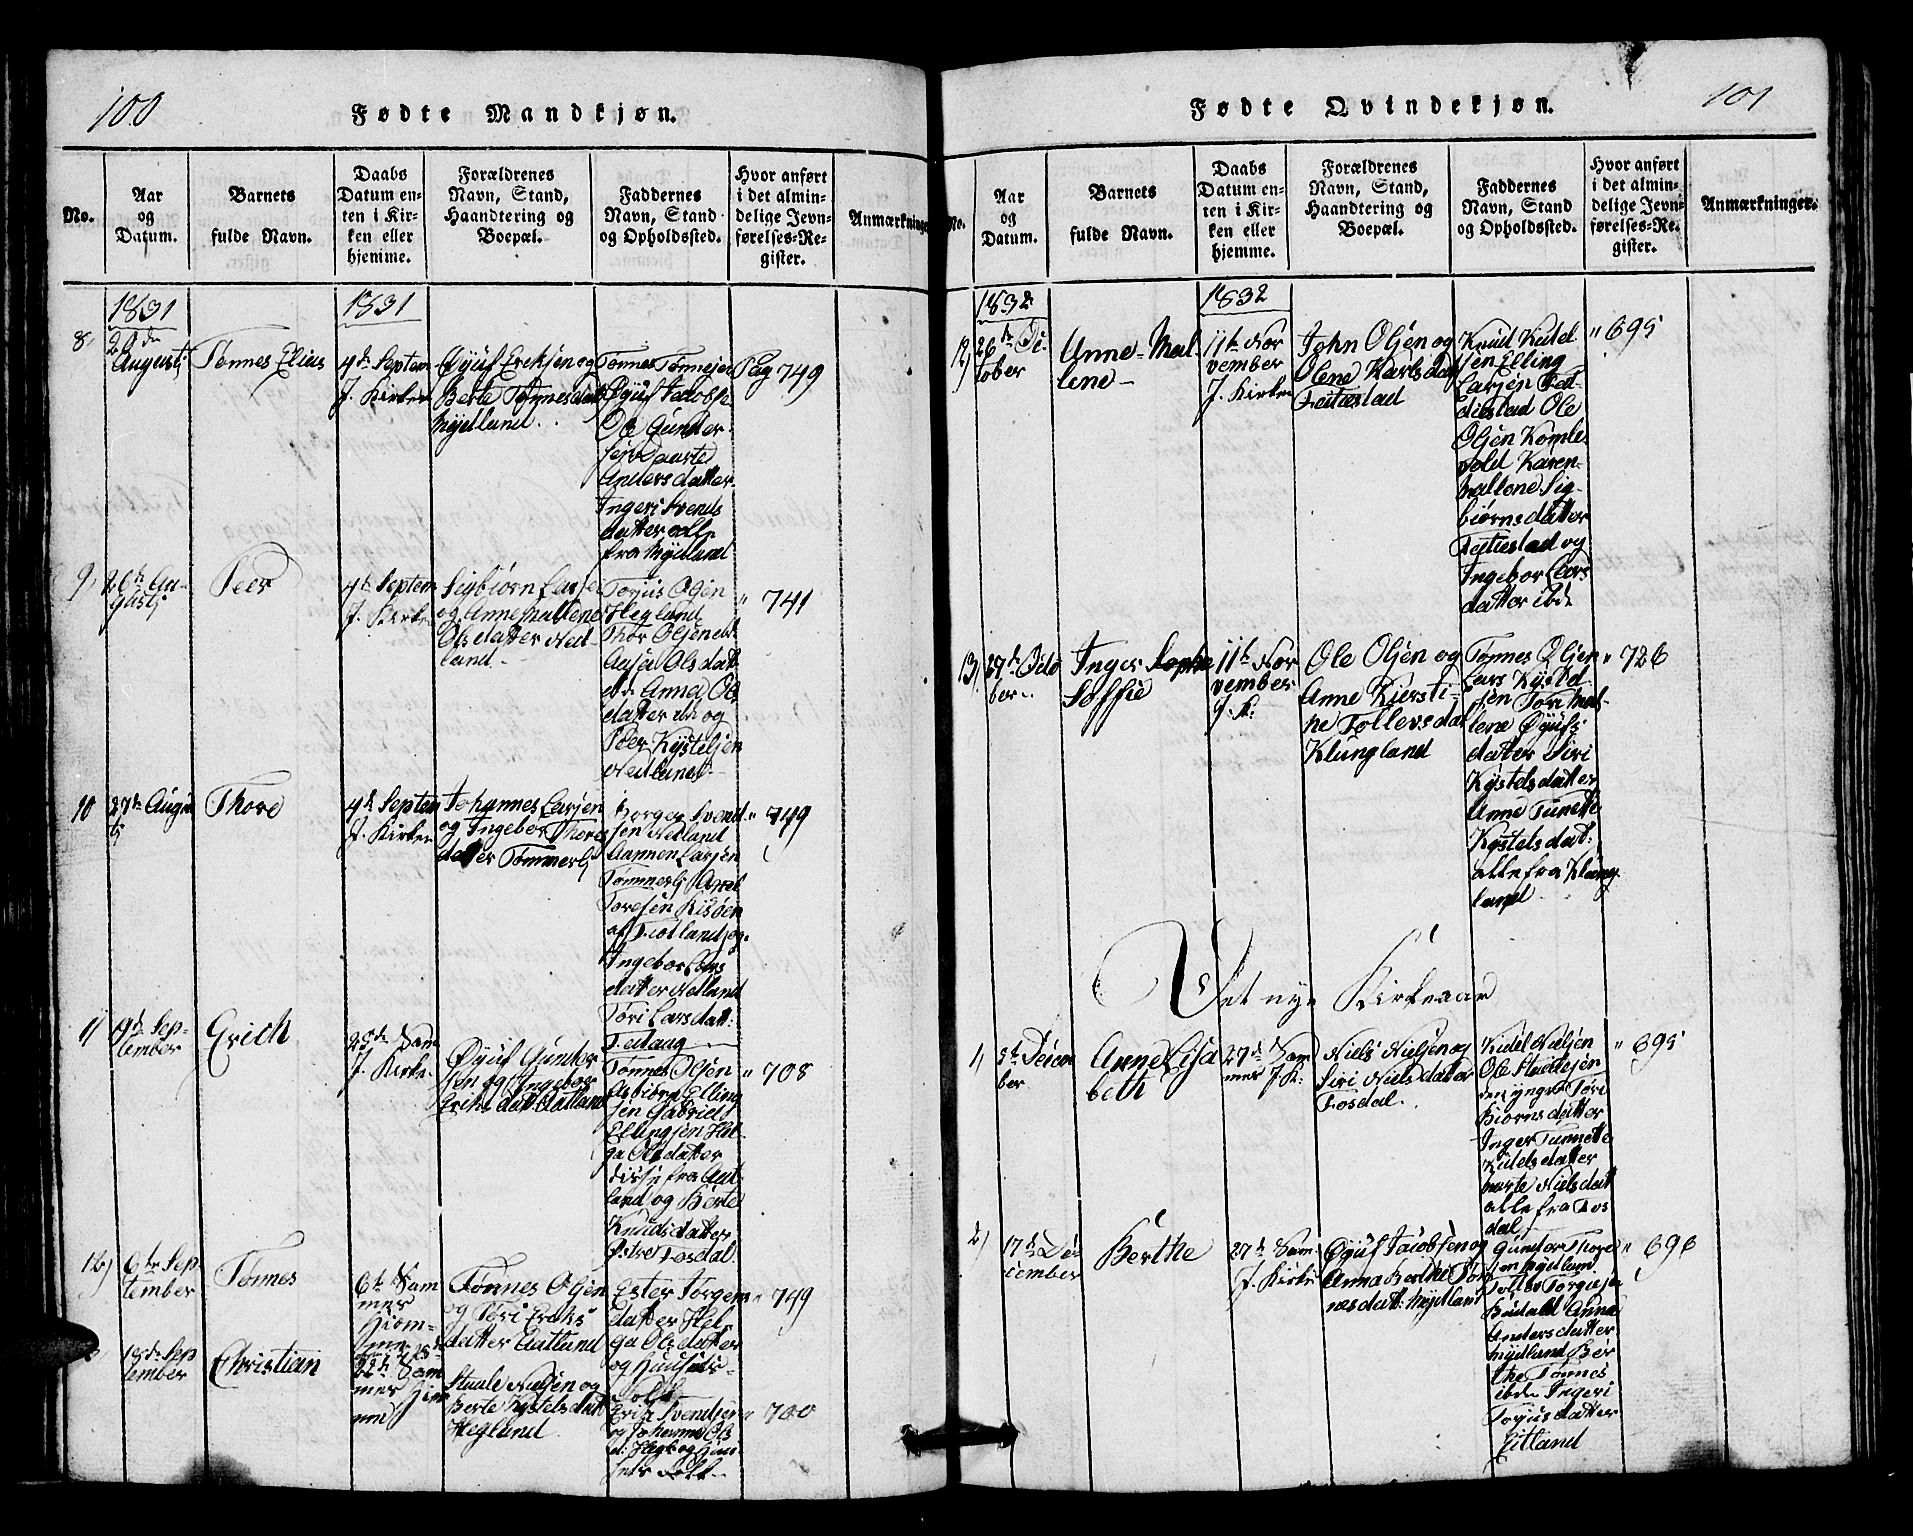 100
Fødte Mandkjøn.
No.
Aar
og
Datum.
Barnets
fulde Navn.
Daabs
Datum en-
ten i Kir-
ken eller
hjemme.
Forældrenes
Navn, Stand,
Haandtering og
Boepæl.
Faddernes
Navn, Stand
og Opholdssted.
Hvor anført
i det almin-
delige Jevn-
førelses-Re-
gister.
Anmærkninger
1831
1831
8,
Augusti
Tonnes Elius
4de Septem
J. Kirken
Øyuf Ereksen og
Berte Tonnesdat
Mydland.
Tonnes Tonnesen
Øyuf Jacobs.
Ole Gunder
sen Aaste
Andersdatter
Ingeri Svends
datter alle
fra Mydland
Pag 749
9,
26de Au-
gusti
Peer
4de Septem
J. Kirken
Sigbiørn Larsen
og Anne Mallene
Olsdatter Ned-
land.
Torjus Olsen
Hegland
Thor Olsen ibd
Aasa Olsdat
ibd. Anna Ols
datter ibd og
Peer Kystelsen
Nedland
" 741
10
27de Augu
sti
Thore
4de Septem
J. Kirken
Johannes Larsen
og Ingebor Thores
datter Tømmerli
Borger Svend
sen Nedland
Aamon Larsen
Tømmerli Axel
Toresen
af Fiotland og
Ingebor Lars
datter Nedland
Tori Larsdatt:
Fedaug
" 749
11
19de Sep-
tember
Erich
25de Sam
J. Kirke.
Øyuf Gunder
sen og Ingebor
Eriksdatt Aatland
Tonnes Olsen
Asbiørn Elling
sen Gabriel
Ellingsen Hel-
ga Olsdatter
disse fra Aat-
land og Berte
Knudsdatter
Østre Fosdal.
" 708
12,
6te Sep
tember
Tonnes
6te Sam
mer
Hiem-
me
Tønnes Olsen
og Tori Ereks
datter Aatland
Ester Torgers
datter Hel
ga Olsdatter
og Huusets
Folk
" 749
18de Sep
tember
Christian
22de Sam
mer Hiem
me
Staale Nielsen og
Berte Kystelsdat
Hegland
Erik Svendsen
og Johanne Ols
d: Hegl. og Huu-
sets Folk
" 700
101
Fødte Qvindekjøn.
No.
Aar
og
Datum.
Barnets
fulde Navn.
Daabs
Datum en-
ten i Kir-
ken eller
hjemme.
Forældrenes
Navn, Stand,
Haandtering og
Boepæl.
Faddernes
Navn, Stand
og Opholdssted.
Hvor anført
i det almin-
delige Jevn-
førelses-Re-
gister.
Anmærkninger.
1832
1832
12)
26de Oc-
tober
Anne Mal-
lene
11te Nov
vember
J. Kirke
John Olsen og
Olene Karlsdat
Fedestad
Knud Kidel
sen Elling
Larsen Fed-
destad Ole
Olsen Komle
vold Karen
Mallene Sig-
biørnsdatter
Fedestad og
Ingebor Lars
datter ibd
" 695
13)
27de Octo
ber
Inger Sophie
Soffie
11te Nov
vember
J. K:
Ole Olsen og
Anne Kiersti-
ne Tollevsdat
Klungland
Tonnes Olsen
Lars Kystel
sen Tori Mal-
lene Øyufs
datter Siri
Kystelsdatter
Anne Tunette
Kystelsdat:
alle fra Klung
land
" 726
Det nye Kirkeaar
1,
3de Decem
ber
Anne Lisa
beth
27de Sam
mer J. K:
Niels Nielsen og
Siri Nielsdatter
Fosdal.
Kidel Nielsen
Ole Staalesen
den yngre Tori
Biørnsdatter
Inger Tunnette
Kidelsdatter
Marte Nielsdatt
alle fra Fos
dal
" 695
2)
17de De-
cember
Berthe
27de Sam
J. Kirke
Øyuf Jacobsen og
Anna Berthe Tøn
nesdatt: Mydland
Gunder Thore
sen Mydland
Tollev Torgersen
Anna
Andersdatter
Mydland Ber
the Tønnes
ibde Ingeri
Torjusdatter
Eitland
" 696